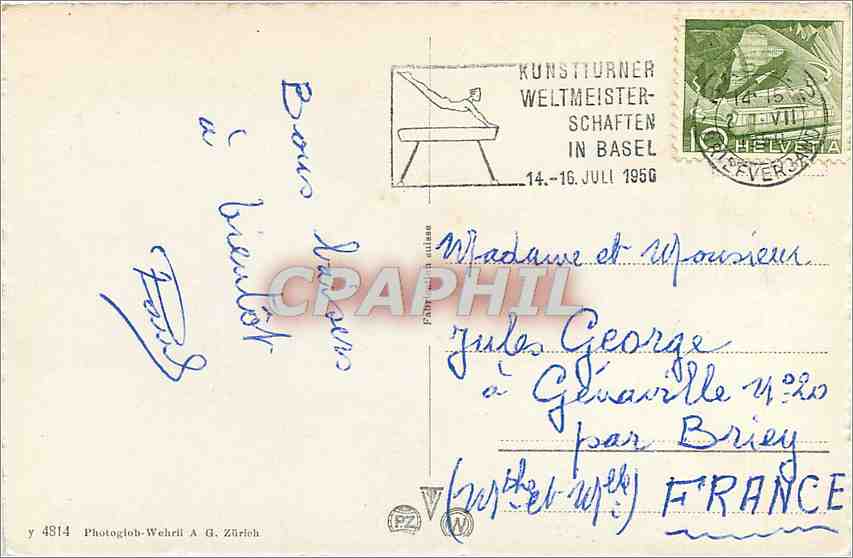 Bons baisers
à bientôt
KUNSTTURNER
WELTMEISTER-
SCHAFTEN
IN BASEL
14.-16. JULI 1950
14-15
VII
BRIEFVERSAND
10 HELVETIA
Fabrication suisse
CPAPHIL
Madame et Monsieur
Jules George
à Génaville Nº 20
par Briey
(Mthe et Mlle) FRANCE
y 4814 Photoglob-Wehrli A G. Zürich
PZ
W